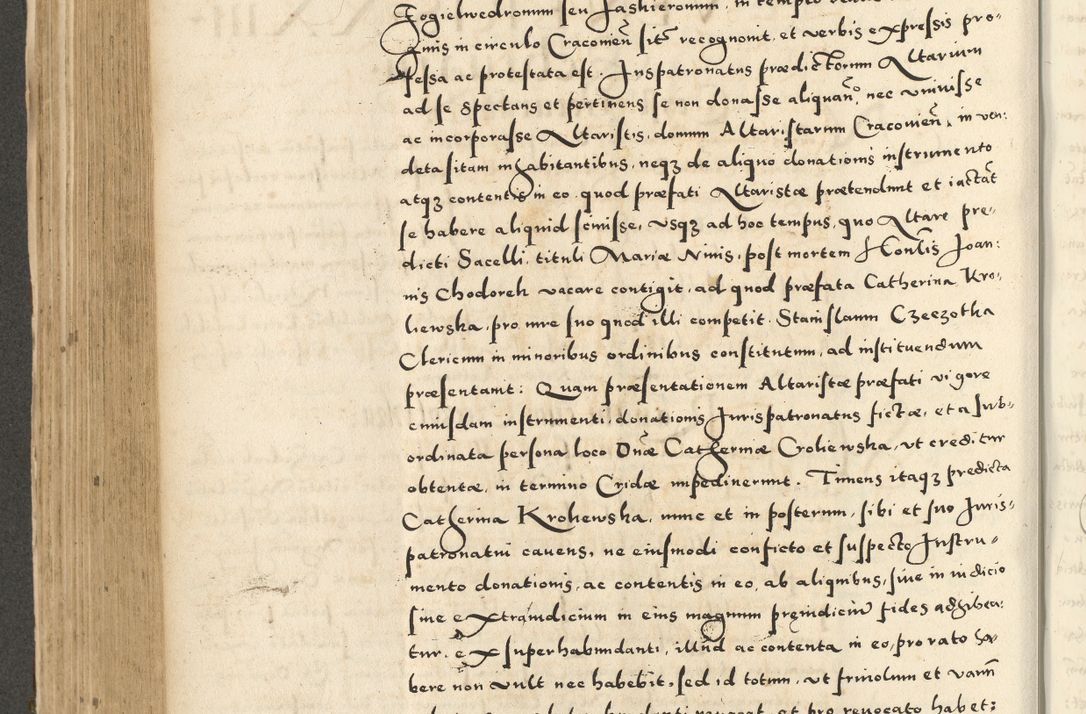 Jogielwedronum seu Jashieronum, in templo
Omnis in circulo Cracovien̄ sit̄ recognovit, et verbis expressis pro-
fessa ac protestata est. Juspatronatus prædictorum Altarium
ad se spectans et pertinens se non donasse aliquan̄o, nec univisse
ac incorporasse Altaristis, domum Altaristarum Cracovien̄, in ven:
deta sitam inhabitantibus, neqз de aliquo donationis instrumento
atqз contentis in eo, quod præfati Altaristæ prætendunt et iactāt
se habere aliquid scivisse, usqз ad hoc tempus, quo Altare pre-
dicti Sacelli, tituli Mariæ Nivis, post mortem Honlis Joan:
nis Chodoreh vacare contigit, ad quod præfata Catherina Kro-
liewska, pro iure suo quod illi competit. Stanislaum Czeczotka
Clericum in minoribus ordinibus constitutum, ad instituendum
præsentavit: Quam præsentationem Altaristæ præfati vigore
cuiusdam instrumenti, donationis Jurispatronatus fictæ, et a sub-
ordinata persona loco Dn̄æ Catherinæ Croliewska, ut creditur
obtentæ, in termino Cridæ impedinerunt. Timens itaqз predicta
Catherina Kroliewska, nunc et in posterum, sibi et suo Juris-
patronatui cavens, ne eiusmodi conficto et suspecto Instru-
mento donationis, ac contentis in eo, ab aliquibus, sive in iudicio
sive extraiudicium in eius magnum preiudiciū fides adhibea-
tur. ex superhabundanti, illud ac contenta in eo, pro rato ha-
bere non vult nec habebit, sed id totum, ut frivolum et vanū
revocat, et pro revocato habet: